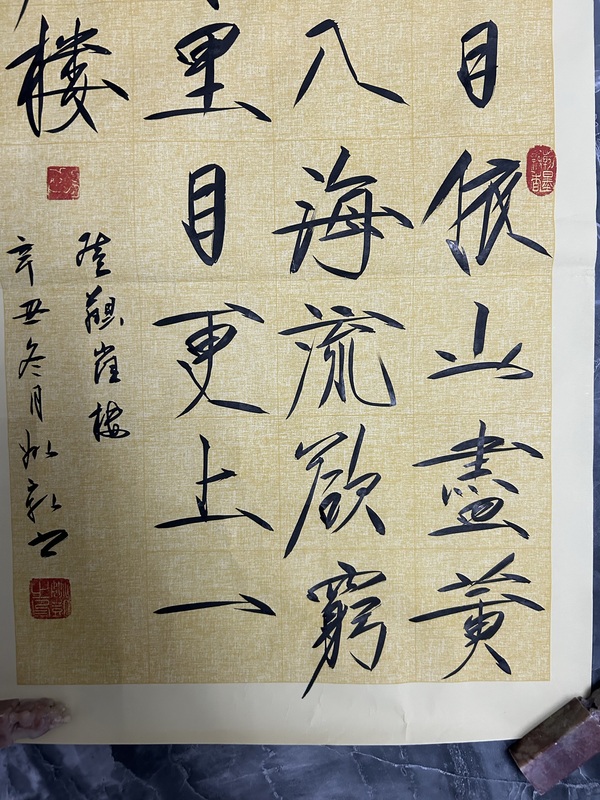 日依山盡黄
入海流欲窮
里目更上一
楼
登鸛雀楼
辛丑冬月